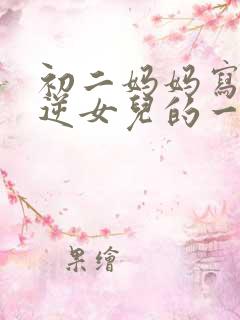 初二妈妈寫
逆女兒的一
果繪